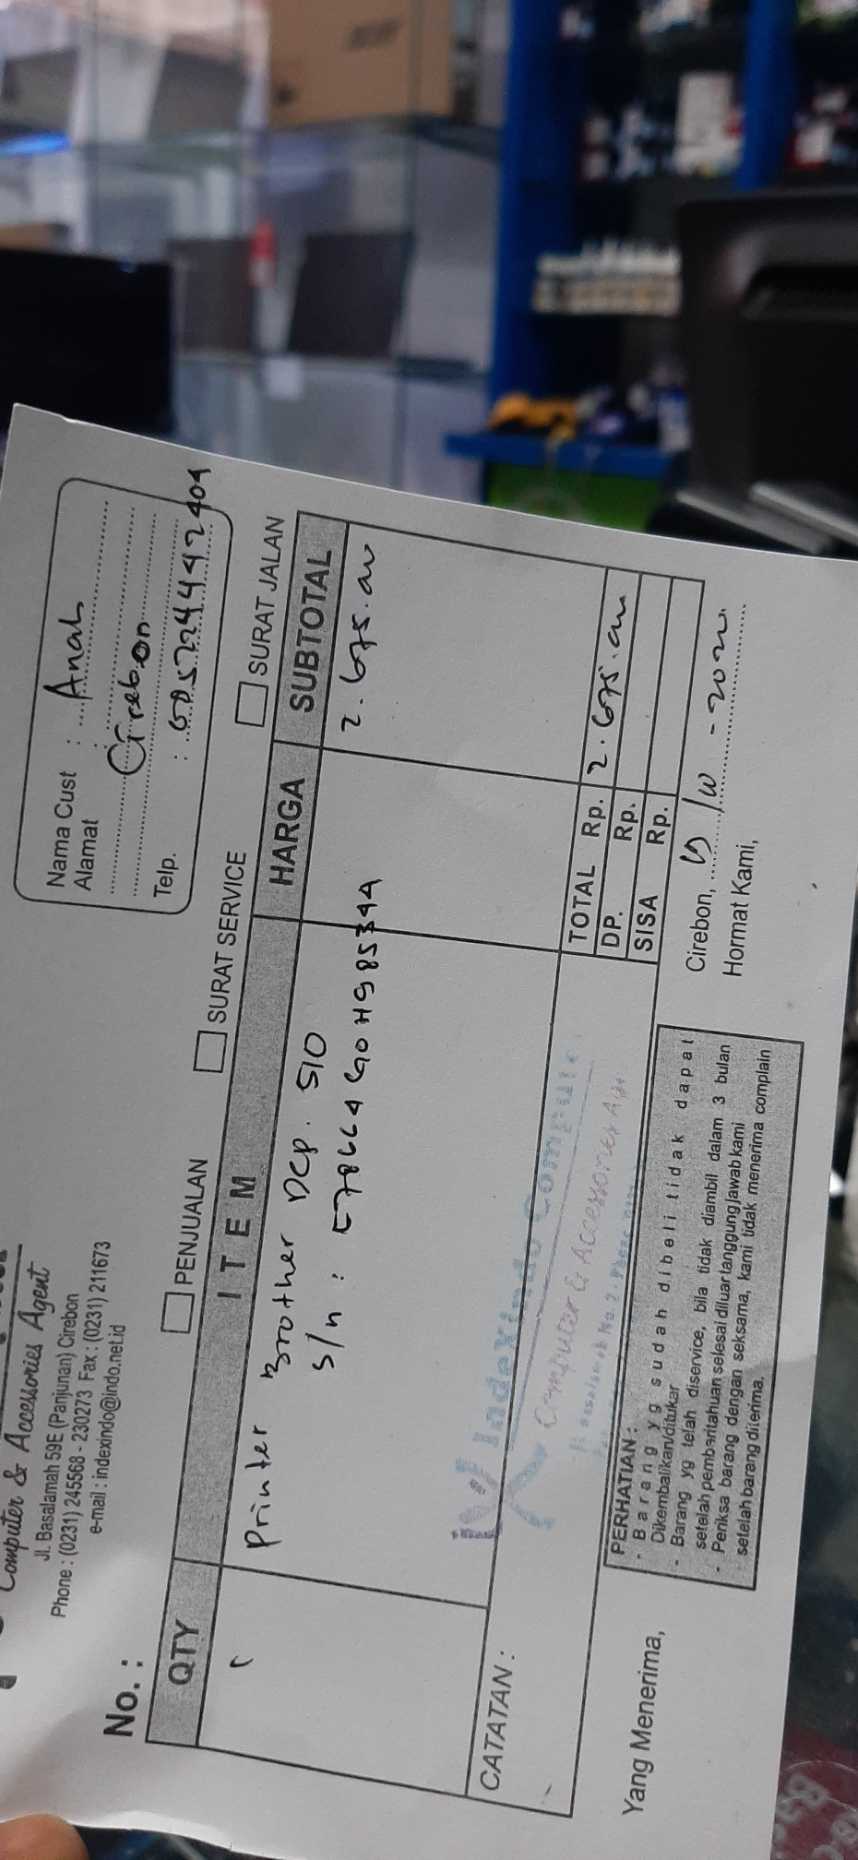 Computer & Accessories Agent
Jl. Basalamah 59E (Panjunan) Cirebon
Phone : (0231) 245568 - 230273 Fax : (0231) 211673
e-mail : indexindo@indo.net.id
Nama Cust :
Alamat : Cirebon
Telp. :
No. :
PENJUALAN SURAT SERVICE SURAT JALAN
QTY ITEM HARGA SUBTOTAL
Printer Brother DCP. 510 2.675.
S/n :
CATATAN :
Indexindo Computer
Computer & Accessories
TOTAL Rp. 2.675.
DP. Rp.
SISA Rp.
Yang Menerima,
PERHATIAN :
- Barang yg sudah dibeli tidak dapat
Dikembalikan/ditukar
- Barang yg telah diservice, bila tidak diambil dalam 3 bulan
setelah pemberitahuan selesai diluar tanggung jawab kami
- Periksa barang dengan seksama, kami tidak menerima complain
setelah barang diterima.
Cirebon,
Hormat Kami,